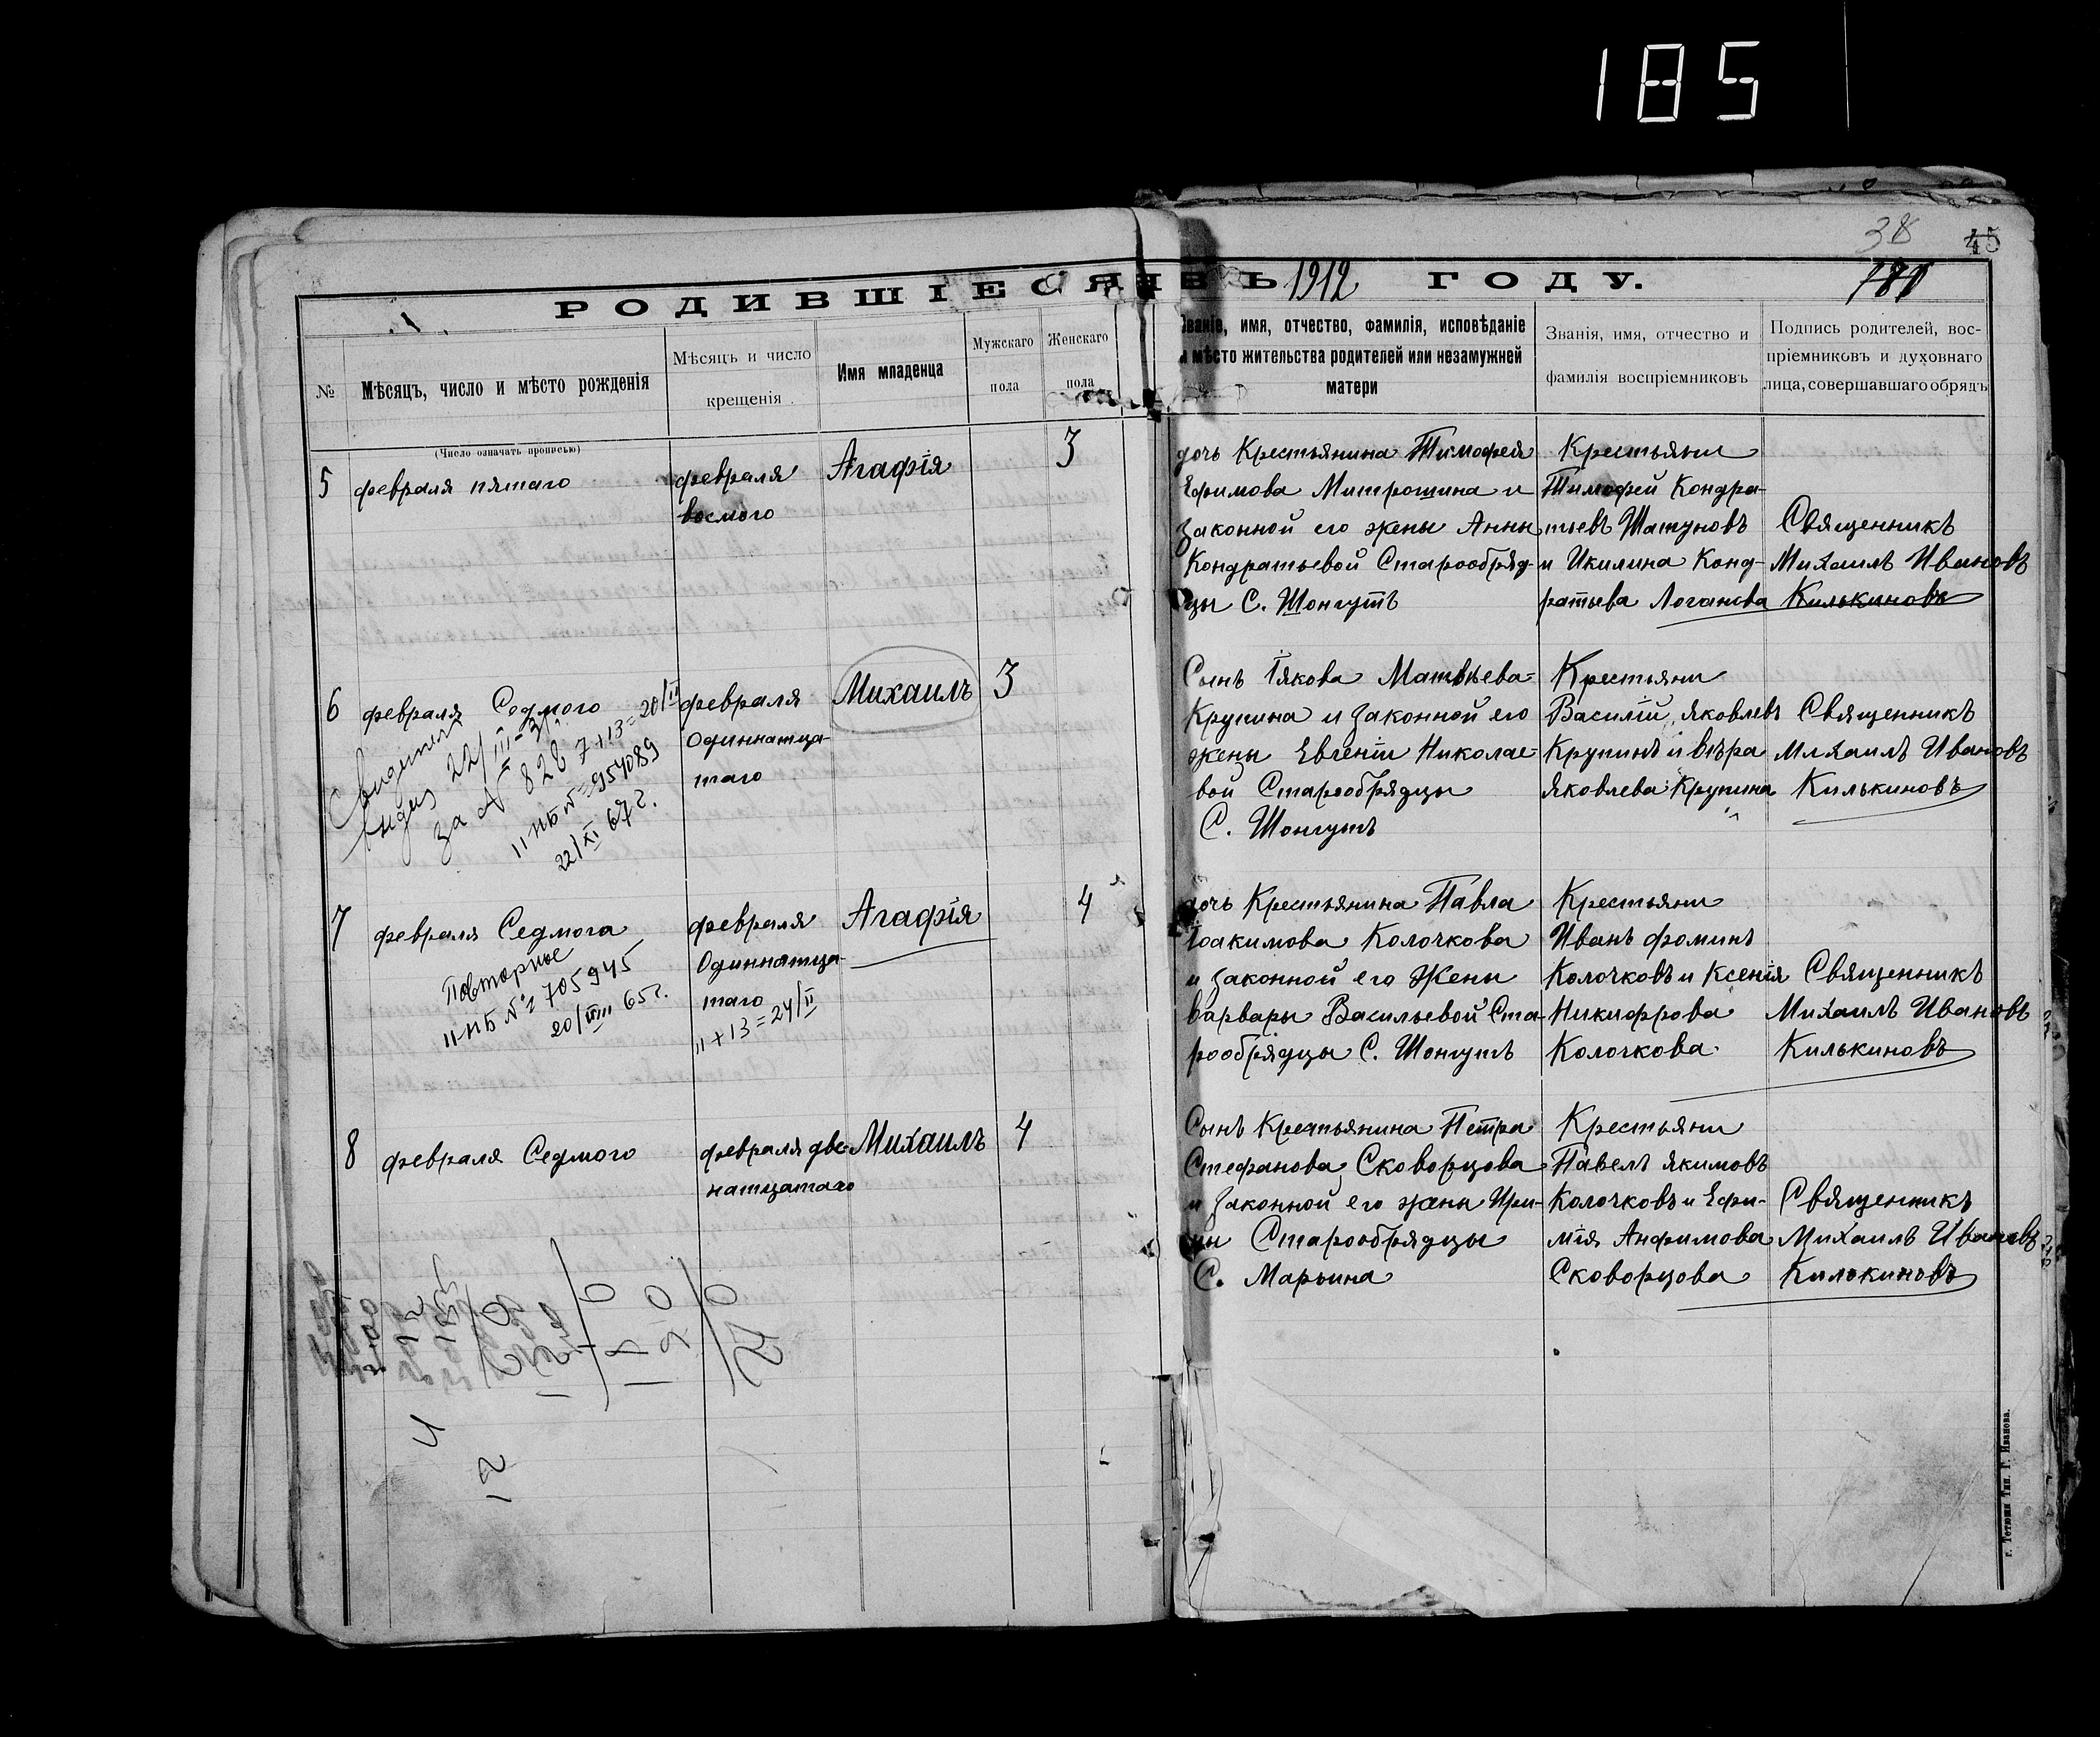 185
38
45
РОДИВШІЕСЯ ВЪ 1912 ГОДУ.
№
Мѣсяцъ, число и мѣсто рожденія
Мѣсяцъ и число
крещенія
Имя младенца
Мужскаго
пола
Женскаго
пола
Званіе, имя, отчество, фамилія, исповѣданіе
и мѣсто жительства родителей или незамужней
матери
Званія, имя, отчество и
фамилія воспріемниковъ
Подпись родителей, вос-
пріемниковъ и духовнаго
лица, совершавшаго обрядъ
(Число означать прописью)
5
февраля пятаго
февраля
восмого
Агафія
3
дочь Крестьянина Тимофея
Ефимова Митрошина и
Законной его жены Анны
Кондратьевой Старообряд-
цы С. Шонгутъ
Крестьяни
Тимофей Кондра-
тьевъ Шатуновъ
и Икилина Конд-
ратьева Логанова
Священникъ
Михаилъ Ивановъ
Килькиновъ
6
февраля Седмого
7+13=20/II
22/III-31
за № 828
II ИБ № 954089
22/XI 67 г.
февраля
Одиннатца-
таго
Михаилъ
3
Сынъ Іякова Матвѣева
Крупина и Законной его
жены Евгеніи Николае-
вой Старообрядцы
С. Шонгутъ
Крестьяни
Василій, Яковлевъ
Крупинъ и Вѣра
Яковлева Крупина
Священникъ
Михаилъ Ивановъ
Килькиновъ
7
февраля Седмога
Повторное
II-ИБ № 705945
20/VIII 65 г.
февраля
Одиннатца-
таго
11+13=24/II
Агафія
4
дочь Крестьянина Павла
Іоакимова Колочкова
и законной его Жены
Варвары Васильевой Ста-
рообрядцы С. Шонгутъ
Крестьяни
Иванъ фоминъ
Колочковъ и Ксенія
Никифрова
Колочкова
Священникъ
Михаилъ Ивановъ
Килькиновъ
8
февраля Седмого
февраля две-
натцатаго
Михаилъ
4
Сынъ Крестьянина Петра
Стефанова Сковорцова
и Законной его жены Ири-
ны Старообрядцы
С. Марьина
Крестьяни
Павелъ Якимовъ
Колочковъ и Ефи-
мія Анфимова
Сковорцова
Священникъ
Михаилъ Ивановъ
Килькиновъ
г. Тетюши Тип. Г. Иванова.